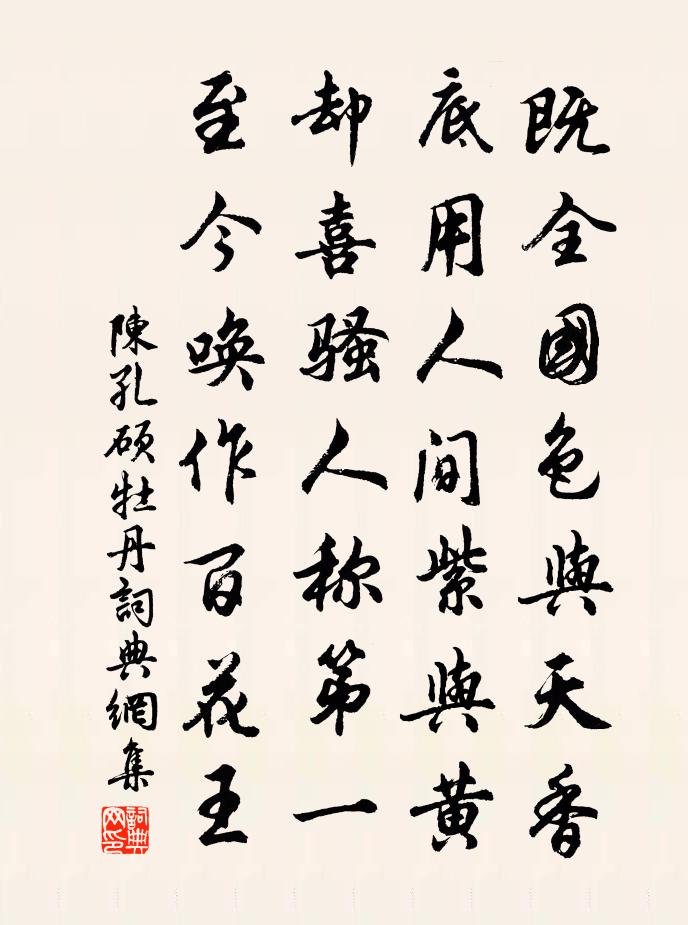 既全國色與天香
底用人间紫與黄
却喜骚人称第一
至今唤作百花王
陳孔硕牡丹詞典網集
詞典网印